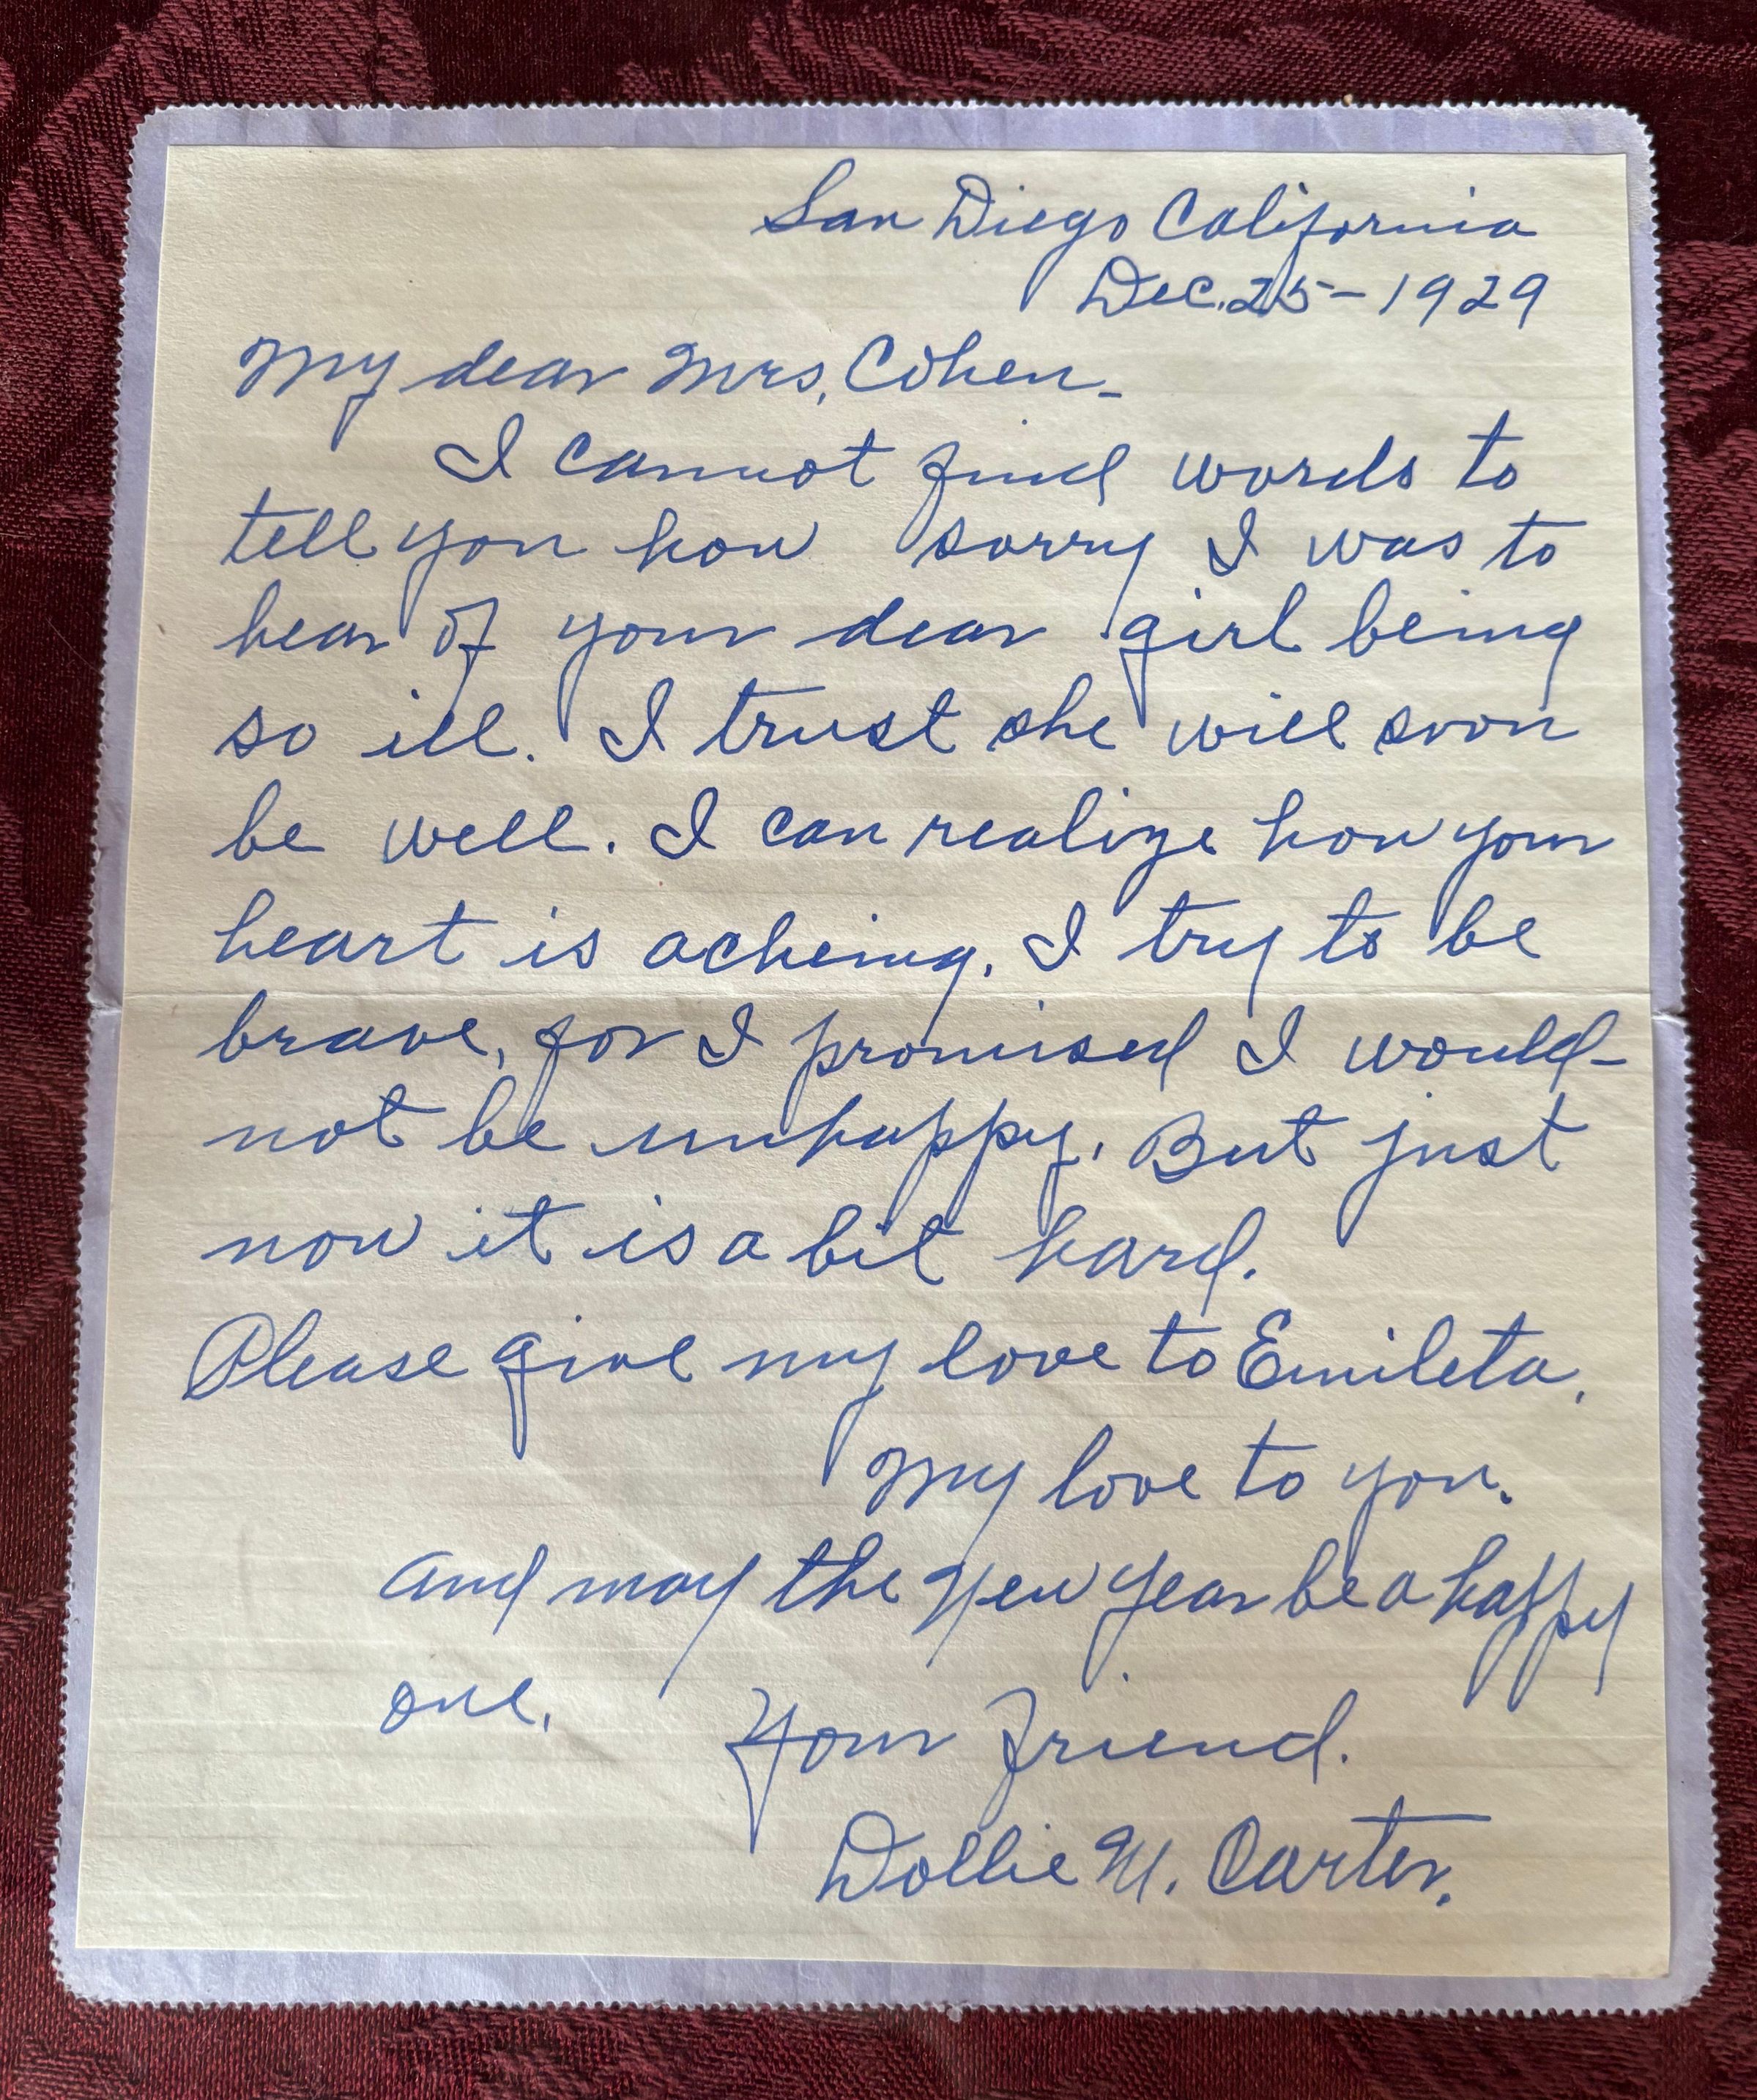 San Diego California
Dec. 25 - 1929
My dear Mrs. Cohen -
I cannot find words to
tell you how sorry I was to
hear of your dear girl being
so ill. I trust she will soon
be well. I can realize how your
heart is acheing. I try to be
brave, for I promised I would -
not be unhappy. But just
now it is a bit hard.
Please give my love to Emileta.
My love to you.
and may the New Year be a happy
one.
Your Friend.
Dollie M. Carter.